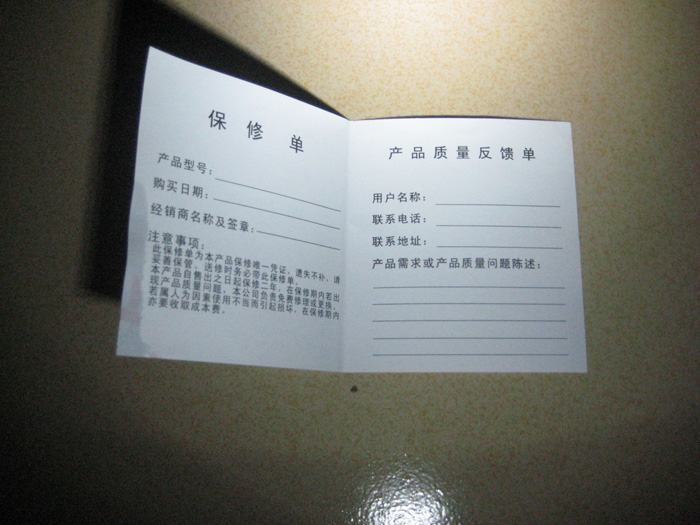 保修单
产品型号：
购买日期：
经销商名称及签章：
注意事项：
此保修单为本产品保修唯一凭证，遗失不补，请
妥善保管，送修时务必带此保修单，
本产品自售出之日起保修二年，在保修期内若出
现产品质量问题，本公司负责免费修理或更换，
若属人为因素使用不当而引起损坏，在保修期内
亦要收取成本费。
产品质量反馈单
用户名称：
联系电话：
联系地址：
产品需求或产品质量问题陈述：